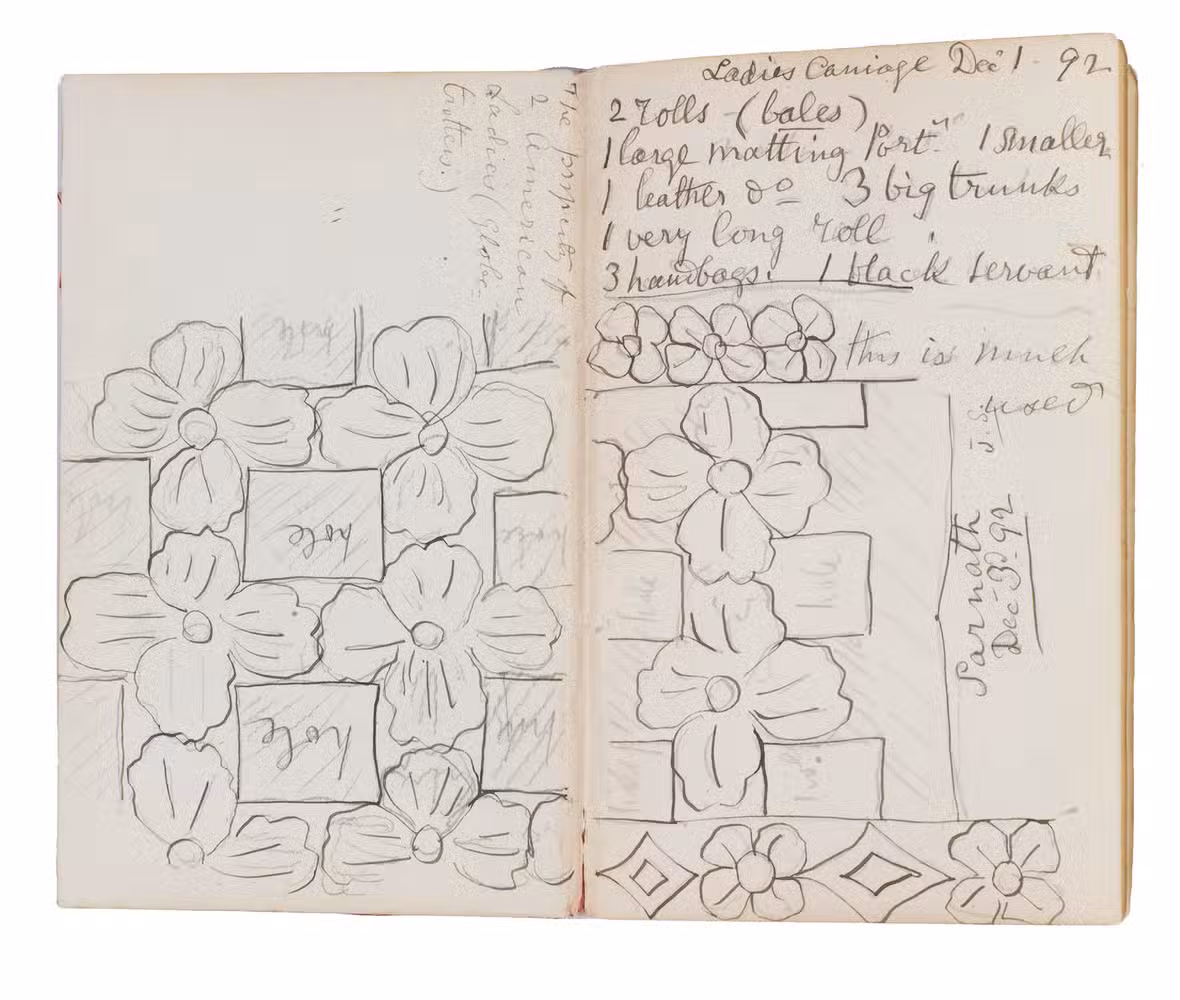 The property of
2 American
Ladies (Globe-
trotters.)
hole
hole
hole
hole
Ladies Carriage Dec 1 - 92
2 rolls - (bales)
1 large matting Port. 1 smaller
1 leather do 3 big trunks
1 very long roll.
3 handbags. 1 black servant
this is much
used
hole
Sarnath
Dec 3d - 92